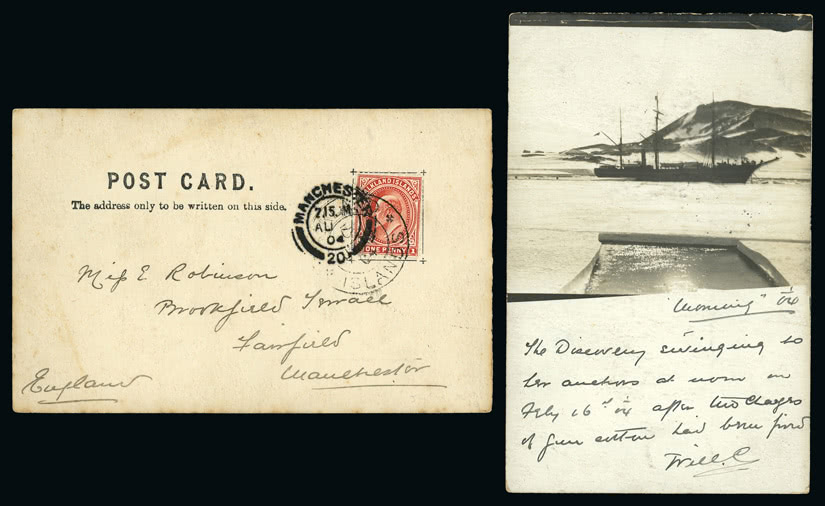 POST CARD.
The address only to be written on this side.
MANCHESTER
7.15
AU
04
20
FALKLAND ISLANDS
ONE PENNY 1
ISLANDS
Miss E Robinson
Brookfield Terrace
Fairfield
Manchester
England
"Morning" 04
The Discovery swinging to
her anchors at noon on
Feby 16th 04 after two charges
of gun cotton had been fired
Will. C